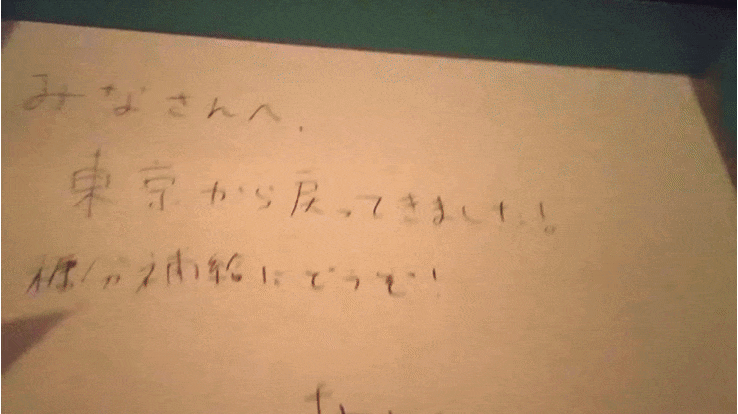 みなさんへ.
東京から戻ってきました!
糖分補給にどうぞ!